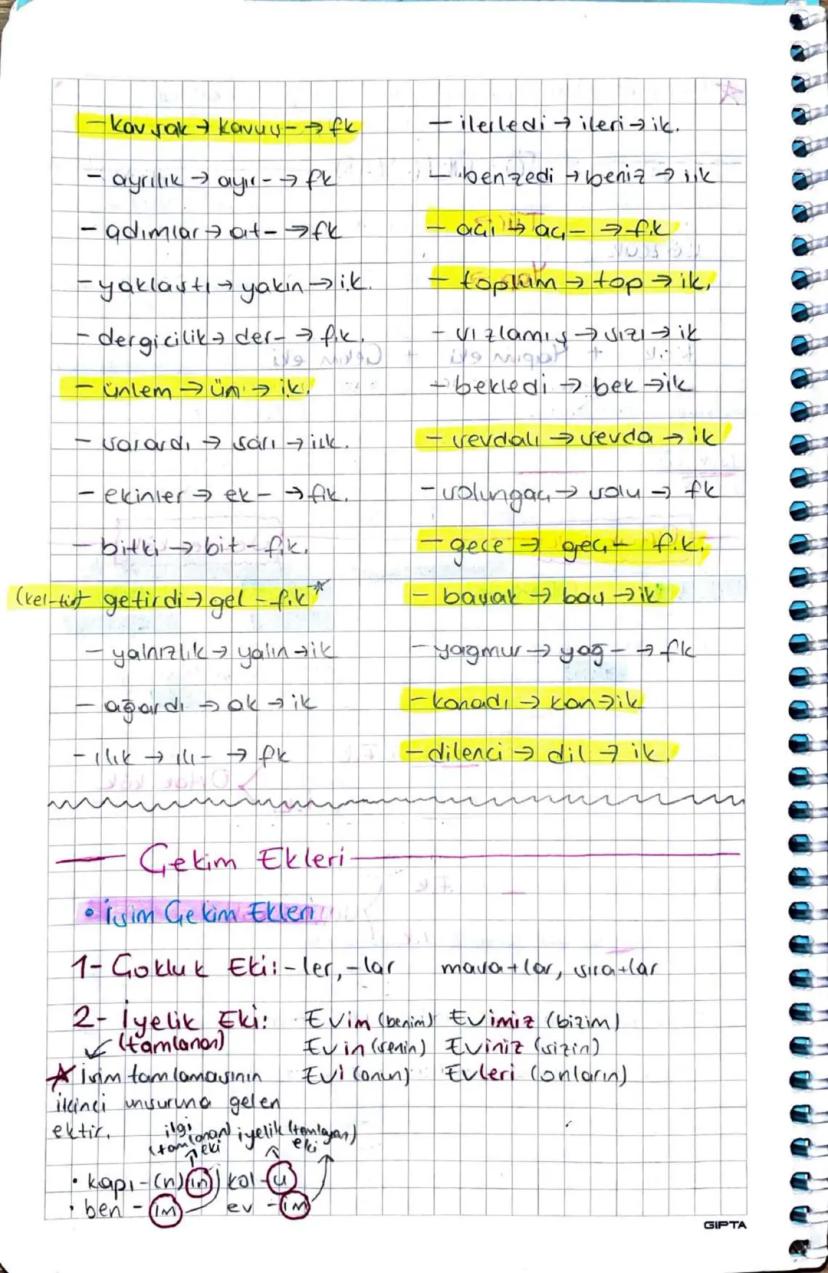 - kavşak → kavuş- → fk
- ayrılık → ayır- → fk
- adımlar → at- → fk
- yaklaştı → yakın → i.k.
- dergicilik → der- → f.k.
- ünlem → ün → ik.
- sarardı → sarı → isk.
- ekinler → ek- → fik.
- bitki → bit - f.k.
(kel-tir) getirdi → gel - f.k *
- yalnızlık → yalın → ik
- ağardı → ak → ik
- ılık → ılı- → fk
- ilerledi → ileri → ik.
- benzedi → beniz → isk
- açı → aç- → f.k
- toplum → top → ik.
- sızlamış → sızı → ik
- bekledi → bek → ik
- sevdalı → sevda → ik
- solungaç → solu → fk
- gece → geç- f.k.
- basak → bas → ik
- yağmur → yağ- → fk
- kanadı → kan → ik
- dilenci → dil → ik.
Çekim Ekleri
• İsim Çekim Ekleri
1- Çokluk Eki: -ler, -lar masa+lar, sıra+lar
2- İyelik Eki: Evim (benim) Evimiz (bizim)
(tamlanan) Evin (senin) Eviniz (sizin)
★ İsim tamlamasının Evi (onun) Evleri (onların)
ikinci unsuruna gelen
ektir.
ilgi (tamlanan) eki iyelik (tamlayan) eki
• kapı - (n) ın kol - u
• ben - im ev - im
GIPTA